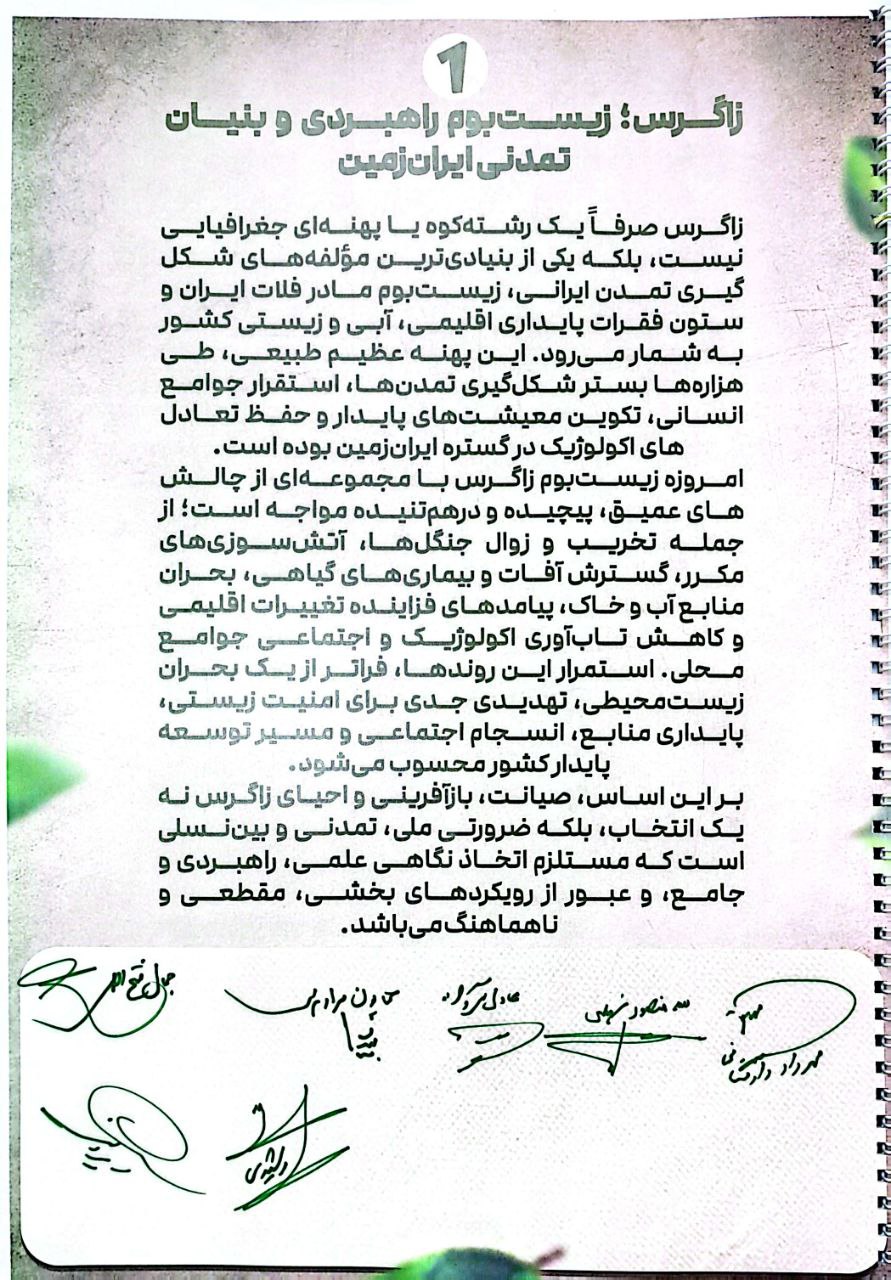 1
زاگرس؛ زیست‌بوم راهبردی و بنیان
تمدنی ایران‌زمین
زاگرس صرفاً یک رشته‌کوه یا پهنه‌ای جغرافیایی
نیست، بلکه یکی از بنیادی‌ترین مؤلفه‌های شکل
گیری تمدن ایرانی، زیست‌بوم مادر فلات ایران و
ستون فقرات پایداری اقلیمی، آبی و زیستی کشور
به شمار می‌رود. این پهنه عظیم طبیعی، طی
هزاره‌ها بستر شکل‌گیری تمدن‌ها، استقرار جوامع
انسانی، تکوین معیشت‌های پایدار و حفظ تعادل
های اکولوژیک در گستره ایران‌زمین بوده است.
امروزه زیست‌بوم زاگرس با مجموعه‌ای از چالش
های عمیق، پیچیده و درهم‌تنیده مواجه است؛ از
جمله تخریب و زوال جنگل‌ها، آتش‌سوزی‌های
مکرر، گسترش آفات و بیماری‌های گیاهی، بحران
منابع آب و خاک، پیامدهای فزاینده تغییرات اقلیمی
و کاهش تاب‌آوری اکولوژیک و اجتماعی جوامع
محلی. استمرار این روندها، فراتر از یک بحران
زیست‌محیطی، تهدیدی جدی برای امنیت زیستی،
پایداری منابع، انسجام اجتماعی و مسیر توسعه
پایدار کشور محسوب می‌شود.
بر این اساس، صیانت، بازآفرینی و احیای زاگرس نه
یک انتخاب، بلکه ضرورتی ملی، تمدنی و بین‌نسلی
است که مستلزم اتخاذ نگاهی علمی، راهبردی و
جامع، و عبور از رویکردهای بخشی، مقطعی و
ناهماهنگ می‌باشد.
منصور سهیلی
جمال فتح
مهرداد